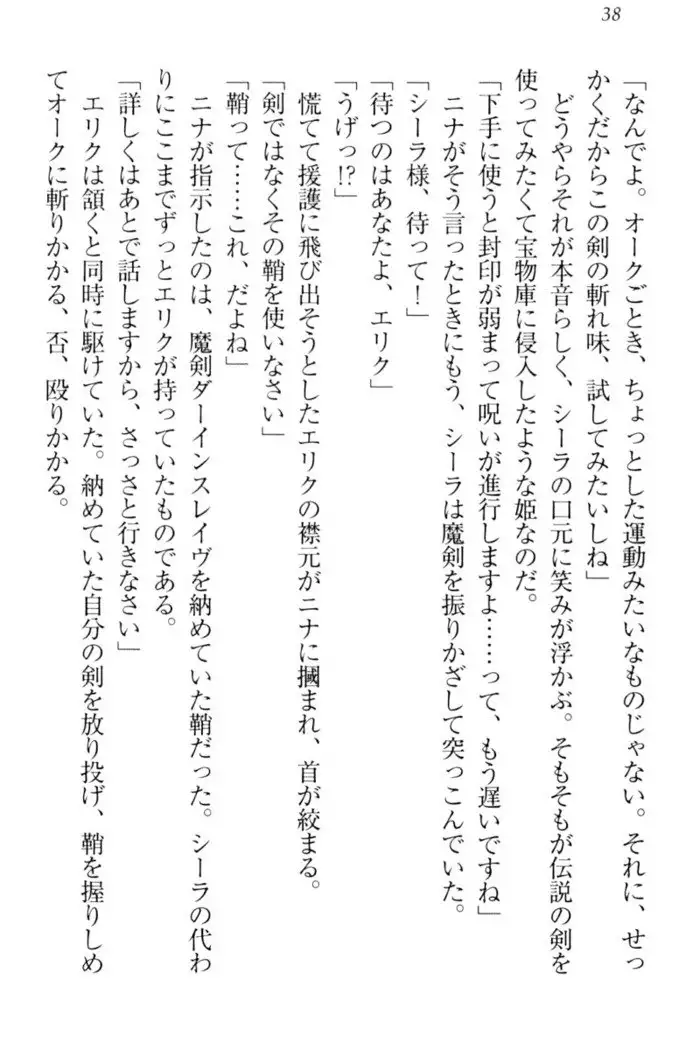 38
「なんでよ。オークごとき、ちょっとした運動みたいなものじゃない。それに、せっ
かくだからこの剣の斬れ味、試してみたいしね」
どうやらそれが本音らしく、シーラの口元に笑みが浮かぶ。そもそもが伝説の剣を
使ってみたくて宝物庫に侵入したような姫なのだ。
「下手に使うと封印が弱まって呪いが進行しますよ……って、もう遅いですね」
ニナがそう言ったときにもう、シーラは魔剣を振りかざして突っこんでいた。
「シーラ様、待って！」
「待つのはあなたよ、エリク」
「うげっ!?」
慌てて援護に飛び出そうとしたエリクの襟元がニナに摑まれ、首が絞まる。
「剣ではなくその鞘を使いなさい」
「鞘って……これ、だよね」
ニナが指示したのは、魔剣ダーインスレイヴを納めていた鞘だった。シーラの代わ
りにここまでずっとエリクが持っていたものである。
「詳しくはあとで話しますから、さっさと行きなさい」
エリクは頷くと同時に駆けていた。納めていた自分の剣を放り投げ、鞘を握りしめ
てオークに斬りかかる、否、殴りかかる。